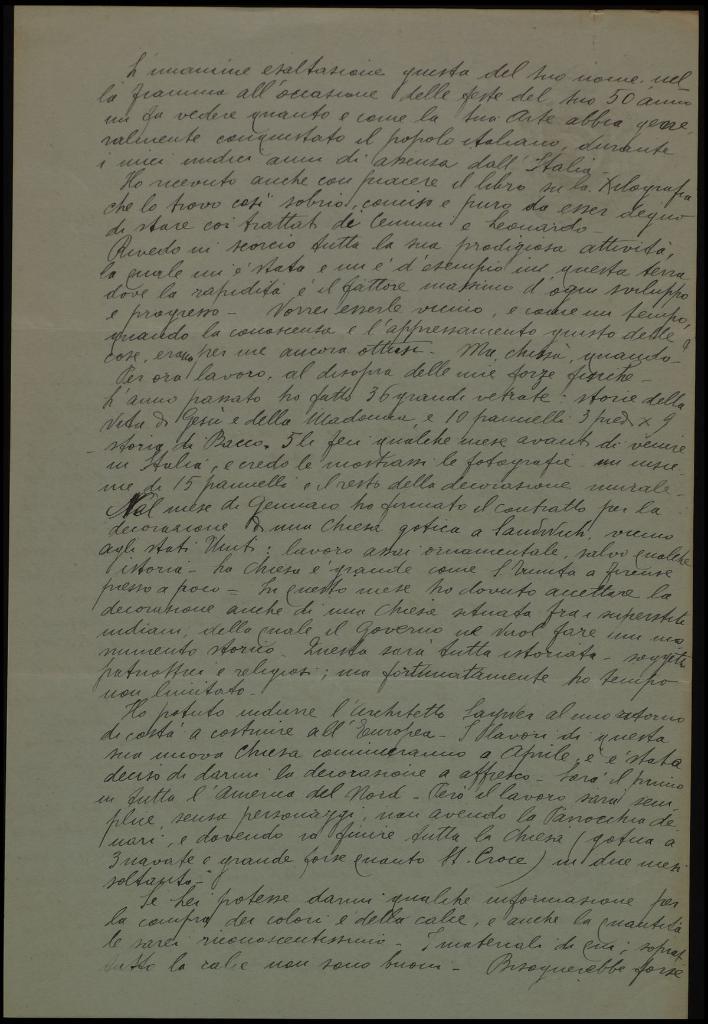 L'unanime esaltazione questa del suo nome. nel
la Fiamma all'occasione delle feste del suo 50 anno
mi fa vedere quanto e come la sua Arte abbia gene
ralmente conquistato il popolo italiano, durante
i miei undici anni di assenza dall'Italia -
Ho ricevuto anche con piacere il libro su la Xilografia
che lo trovo così sobrio, conciso e puro da esser degno
di stare coi trattati di Cennini e Leonardo -
Rivedo in scorcio tutta la sua prodigiosa attività,
la quale mi è stata e mi è d'esempio in questa terra
dove la rapidità è il fattore massimo d'ogni sviluppo
e progresso - Vorrei esserle vicino, e come un tempo,
quando la conoscenza e l'apprezzamento giusto delle
cose, erano per me ancora ottusi. Ma, chissà, quando -
Per ora lavoro, al disopra delle mie forze fisiche -
L'anno passato ho fatto 36 grandi vetrate: storie della
Vita di Gesù e della Madonna, e 10 pannelli 3 pied. x 9
- storia di Bacco. 5 li feci qualche mese avanti di venire
in Italia, e credo le mostrassi le fotografie - un insie
me di 15 pannelli e il resto della decorazione murale -
Nel mese di Gennaio ho firmato il contratto per la
decorazione di una Chiesa gotica a Sandwich, vicino
agli Stati Uniti: lavoro assai ornamentale, salvo qualche
istoria - La Chiesa è grande come S. Trinita a Firenze
presso a poco - In questo mese ho dovuto accettare la
decorazione anche di una Chiesa situata fra i superstiti
indiani, della quale il Governo ne vuol fare un mo
numento storico - Questa sarà tutta istoriata - soggetti
patriottici e religiosi; ma fortunatamente ho tempo
non limitato -
Ho potuto indurre l'architetto al mio ritorno
di costà a costruire all'Europea - I lavori di questa
sua nuova Chiesa cominceranno a Aprile, e è stata
deciso di darmi la decorazione a affresco - Sarà il primo
in tutta l'America del Nord - Però il lavoro sarà sem
plice senza personaggi, non avendo la Parrocchia de
nari, e dovendo io finire tutta la Chiesa (gotica a
3 navate e grande forse quanto St. Croce) in due mesi
soltanto -
Se Lei potesse darmi qualche informazione per
la compra dei colori e della calce, e anche la quantità
le sarei riconoscentissimo - I materiali di qui, soprat
tutto la calce non sono buoni - Bisognerebbe forse